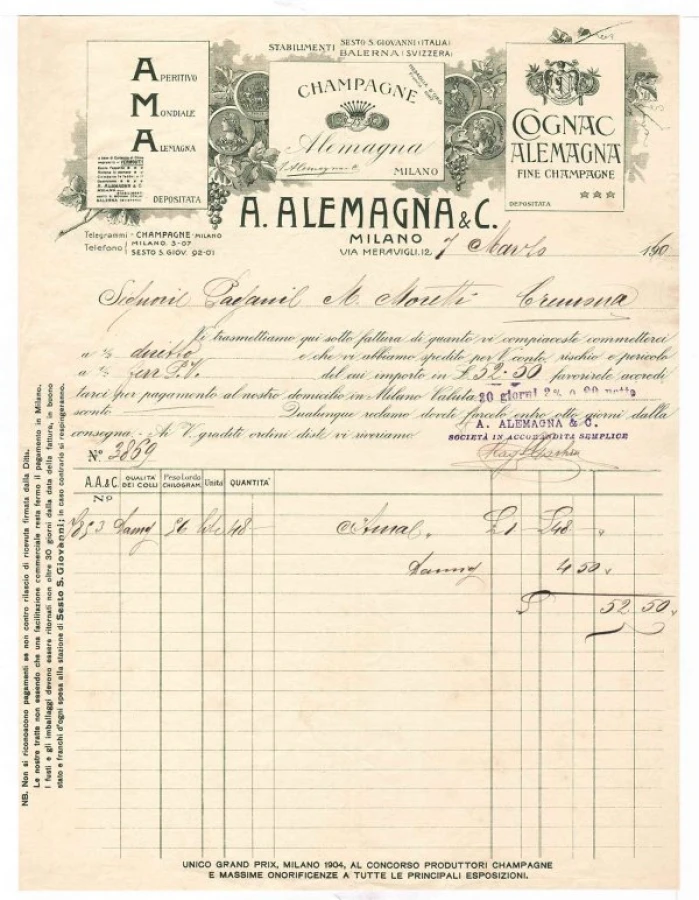 STABILIMENTI SESTO S. GIOVANNI (ITALIA)
BALERNA (SVIZZERA)
APERITIVO
MONDIALE
ALEMAGNA
DEPOSITATA
CHAMPAGNE
Alemagna
MILANO
COGNAC
ALEMAGNA
FINE CHAMPAGNE
DEPOSITATA
A. ALEMAGNA & C.
MILANO
VIA MERAVIGLI, 12
Telegrammi - CHAMPAGNE - MILANO
Telefono MILANO, 3-07
SESTO S. GIOV. 92-01
7 Marzo 1910
M. Moretti Cremona
Vi trasmettiamo qui sotto fattura di quanto vi compiaceste commetterci
a 1/2 diretto e che vi abbiamo spedito per V. conto, rischio e pericolo
a 1/2 ferr P.V. del cui importo in £ 52.50 favorirete accredi
tarci per pagamento al nostro domicilio in Milano Valuta 30 giorni
sconto. Qualunque reclamo dovete farcelo entro otto giorni dalla
consegna. - Ai V. graditi ordini disle vi riveriamo.
A. ALEMAGNA & C.
SOCIETÀ IN ACCOMANDITA SEMPLICE
N.º 3869
A.A.&C. QUALITA' DEI COLLI Peso Lordo CHILOGRAM. Unità QUANTITÀ
Nº
853 Damig 56 48 Ama £ 1 £ 48
Damig 4 50
£ 52 50
NB. Non si riconoscono pagamenti se non contro rilascio di ricevuta firmata dalla Ditta.
Le nostre tratte non essendo che una facilitazione commerciale resta fermo il pagamento in Milano.
I fusti e gli imballaggi devono essere ritornati non oltre 30 giorni dalla data della fattura, in buono
stato e franchi d'ogni spesa alla stazione di Sesto S. Giovanni; in caso contrario si respingeranno.
UNICO GRAND PRIX, MILANO 1904, AL CONCORSO PRODUTTORI CHAMPAGNE
E MASSIME ONORIFICENZE A TUTTE LE PRINCIPALI ESPOSIZIONI.